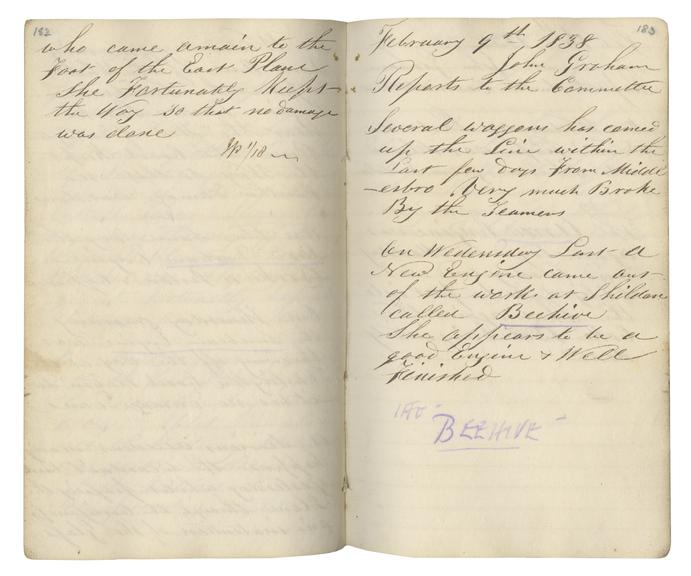 182
who came amain to the
Foot of the East Plane
She Fortunately Keept
the Way so that no damage
was done
183
February 9th 1838
John Graham
Reports to the Committe
Several waggons has comed
up the Line within the
Last few Days From Middl
-esbro Very much Broke
By the Teamers
On Wedensday Last a
New Engine came out
of the works at Shildon
called Beehive
She appears to be a
good Engine & Well
Finished
"BEEHIVE"